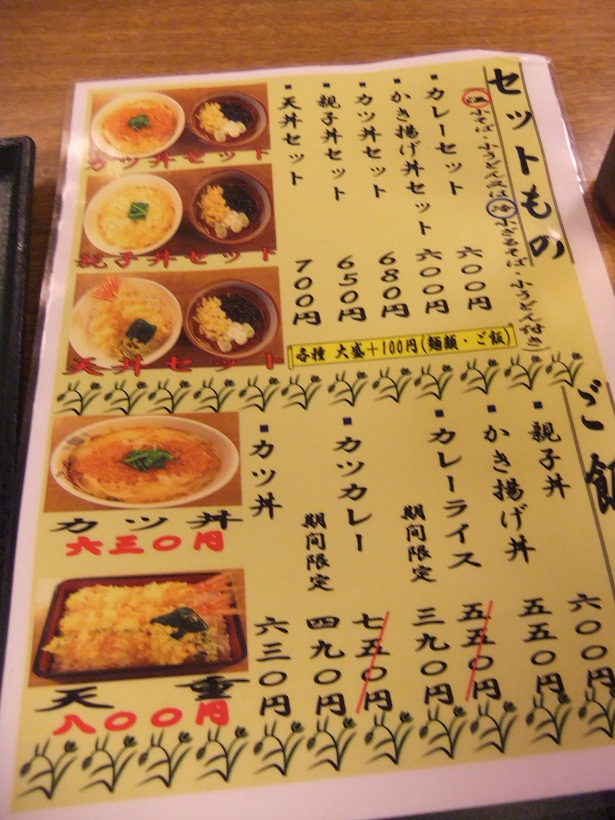 セットもの
温 小そば・小うどん又は 冷 小ざるそば・小うどん付き)
・カレーセット 六〇〇円
・かき揚げ丼セット 六〇〇円
・カツ丼セット 680円
・親子丼セット 650円
・天丼セット 700円
各種 大盛+100円(麺類・ご飯)
カツ丼セット
親子丼セット
天丼セット
ご飯
六〇〇円
・親子丼 五五〇円
・かき揚げ丼 五五〇円
・カレーライス 期間限定 三九〇円
七五〇円
・カツカレー 期間限定 四九〇円
・カツ丼 六三〇円
カツ丼
六三〇円
天重
八〇〇円